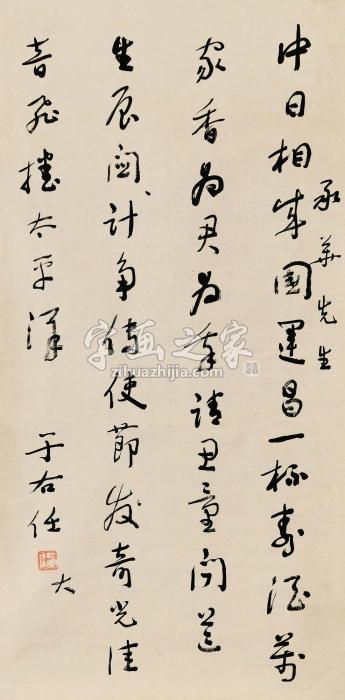 承華先生
中日相成國運昌一杯壽酒萬
家香為君為請思量問道
生辰計爭傳使節發奇光佳
音飛太平洋
于右任
大
字画之家
zihuazhijia.com